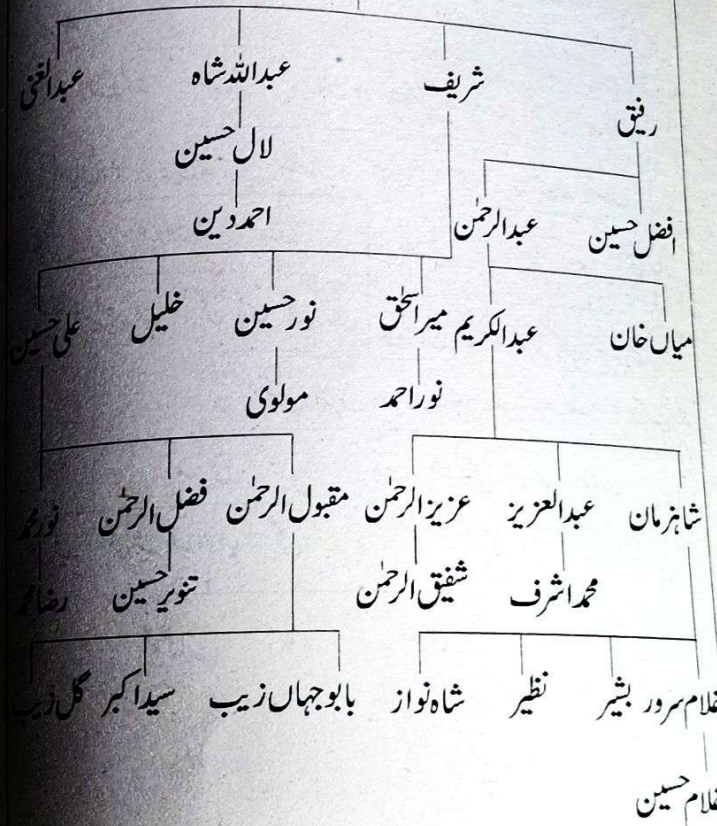 رفیق شریف عبداللہ شاہ عبدالغنی
لال حسین
افضل حسین عبدالرحمٰن احمد دین
میاں خان عبدالکریم میر اسحٰق نور حسین خلیل علی حسین
نور احمد مولوی
شاہزمان عبدالعزیز عزیز الرحمٰن مقبول الرحمٰن فضل الرحمٰن نور محمد
محمد اشرف شفیق الرحمٰن تنویر حسین رضا محمد
غلام سرور بشیر نظیر شاہ نواز بابو جہاں زیب سید اکبر گل زیب
غلام حسین